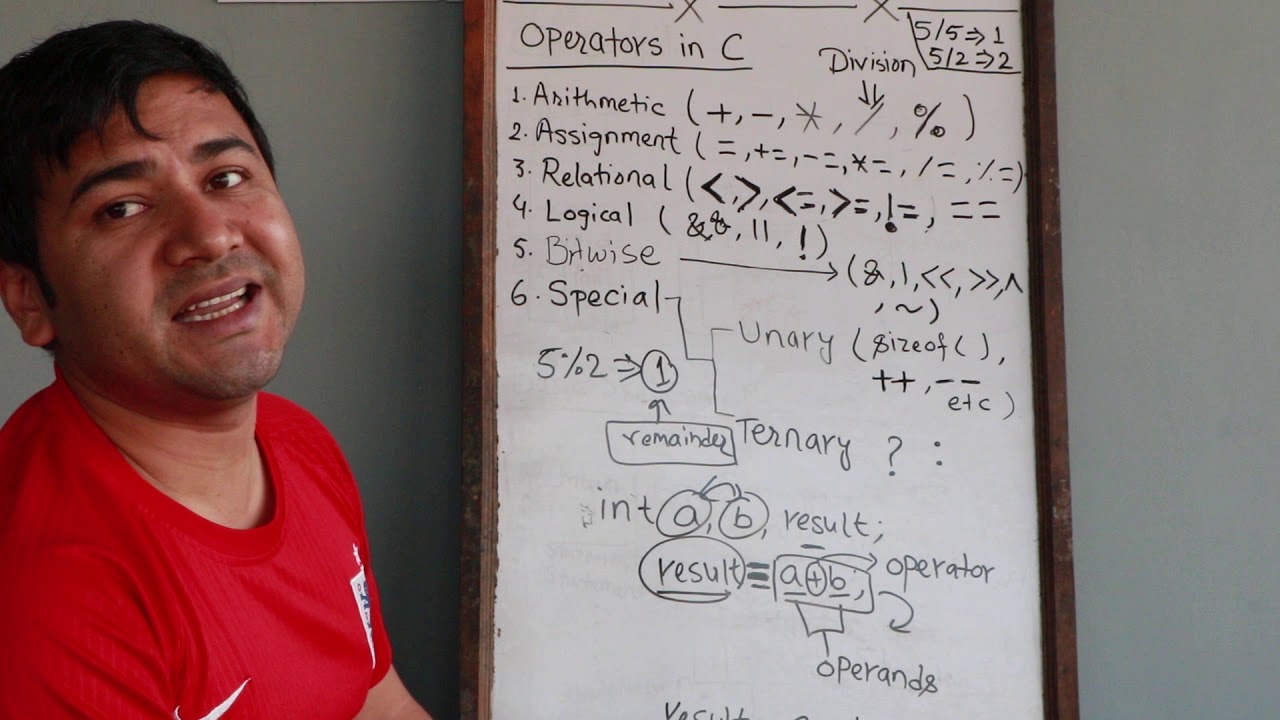 5/5⇒1
5/2⇒2
Operators in C
Division
1. Arithmetic (+,-,*,/,%)
2. Assignment (=,+=,-=,*=,/=,%=)
3. Relational (<,>,<=,>=,!=,==
4. Logical (&&,||,!)
5. Bitwise → (&,|,<<,>>,^
,~)
6. Special
Unary (sizeof(),
++,--
etc)
5%2⇒1
remainder
Ternary ? :
int a,b, result;
result = a+b;
operator
operands